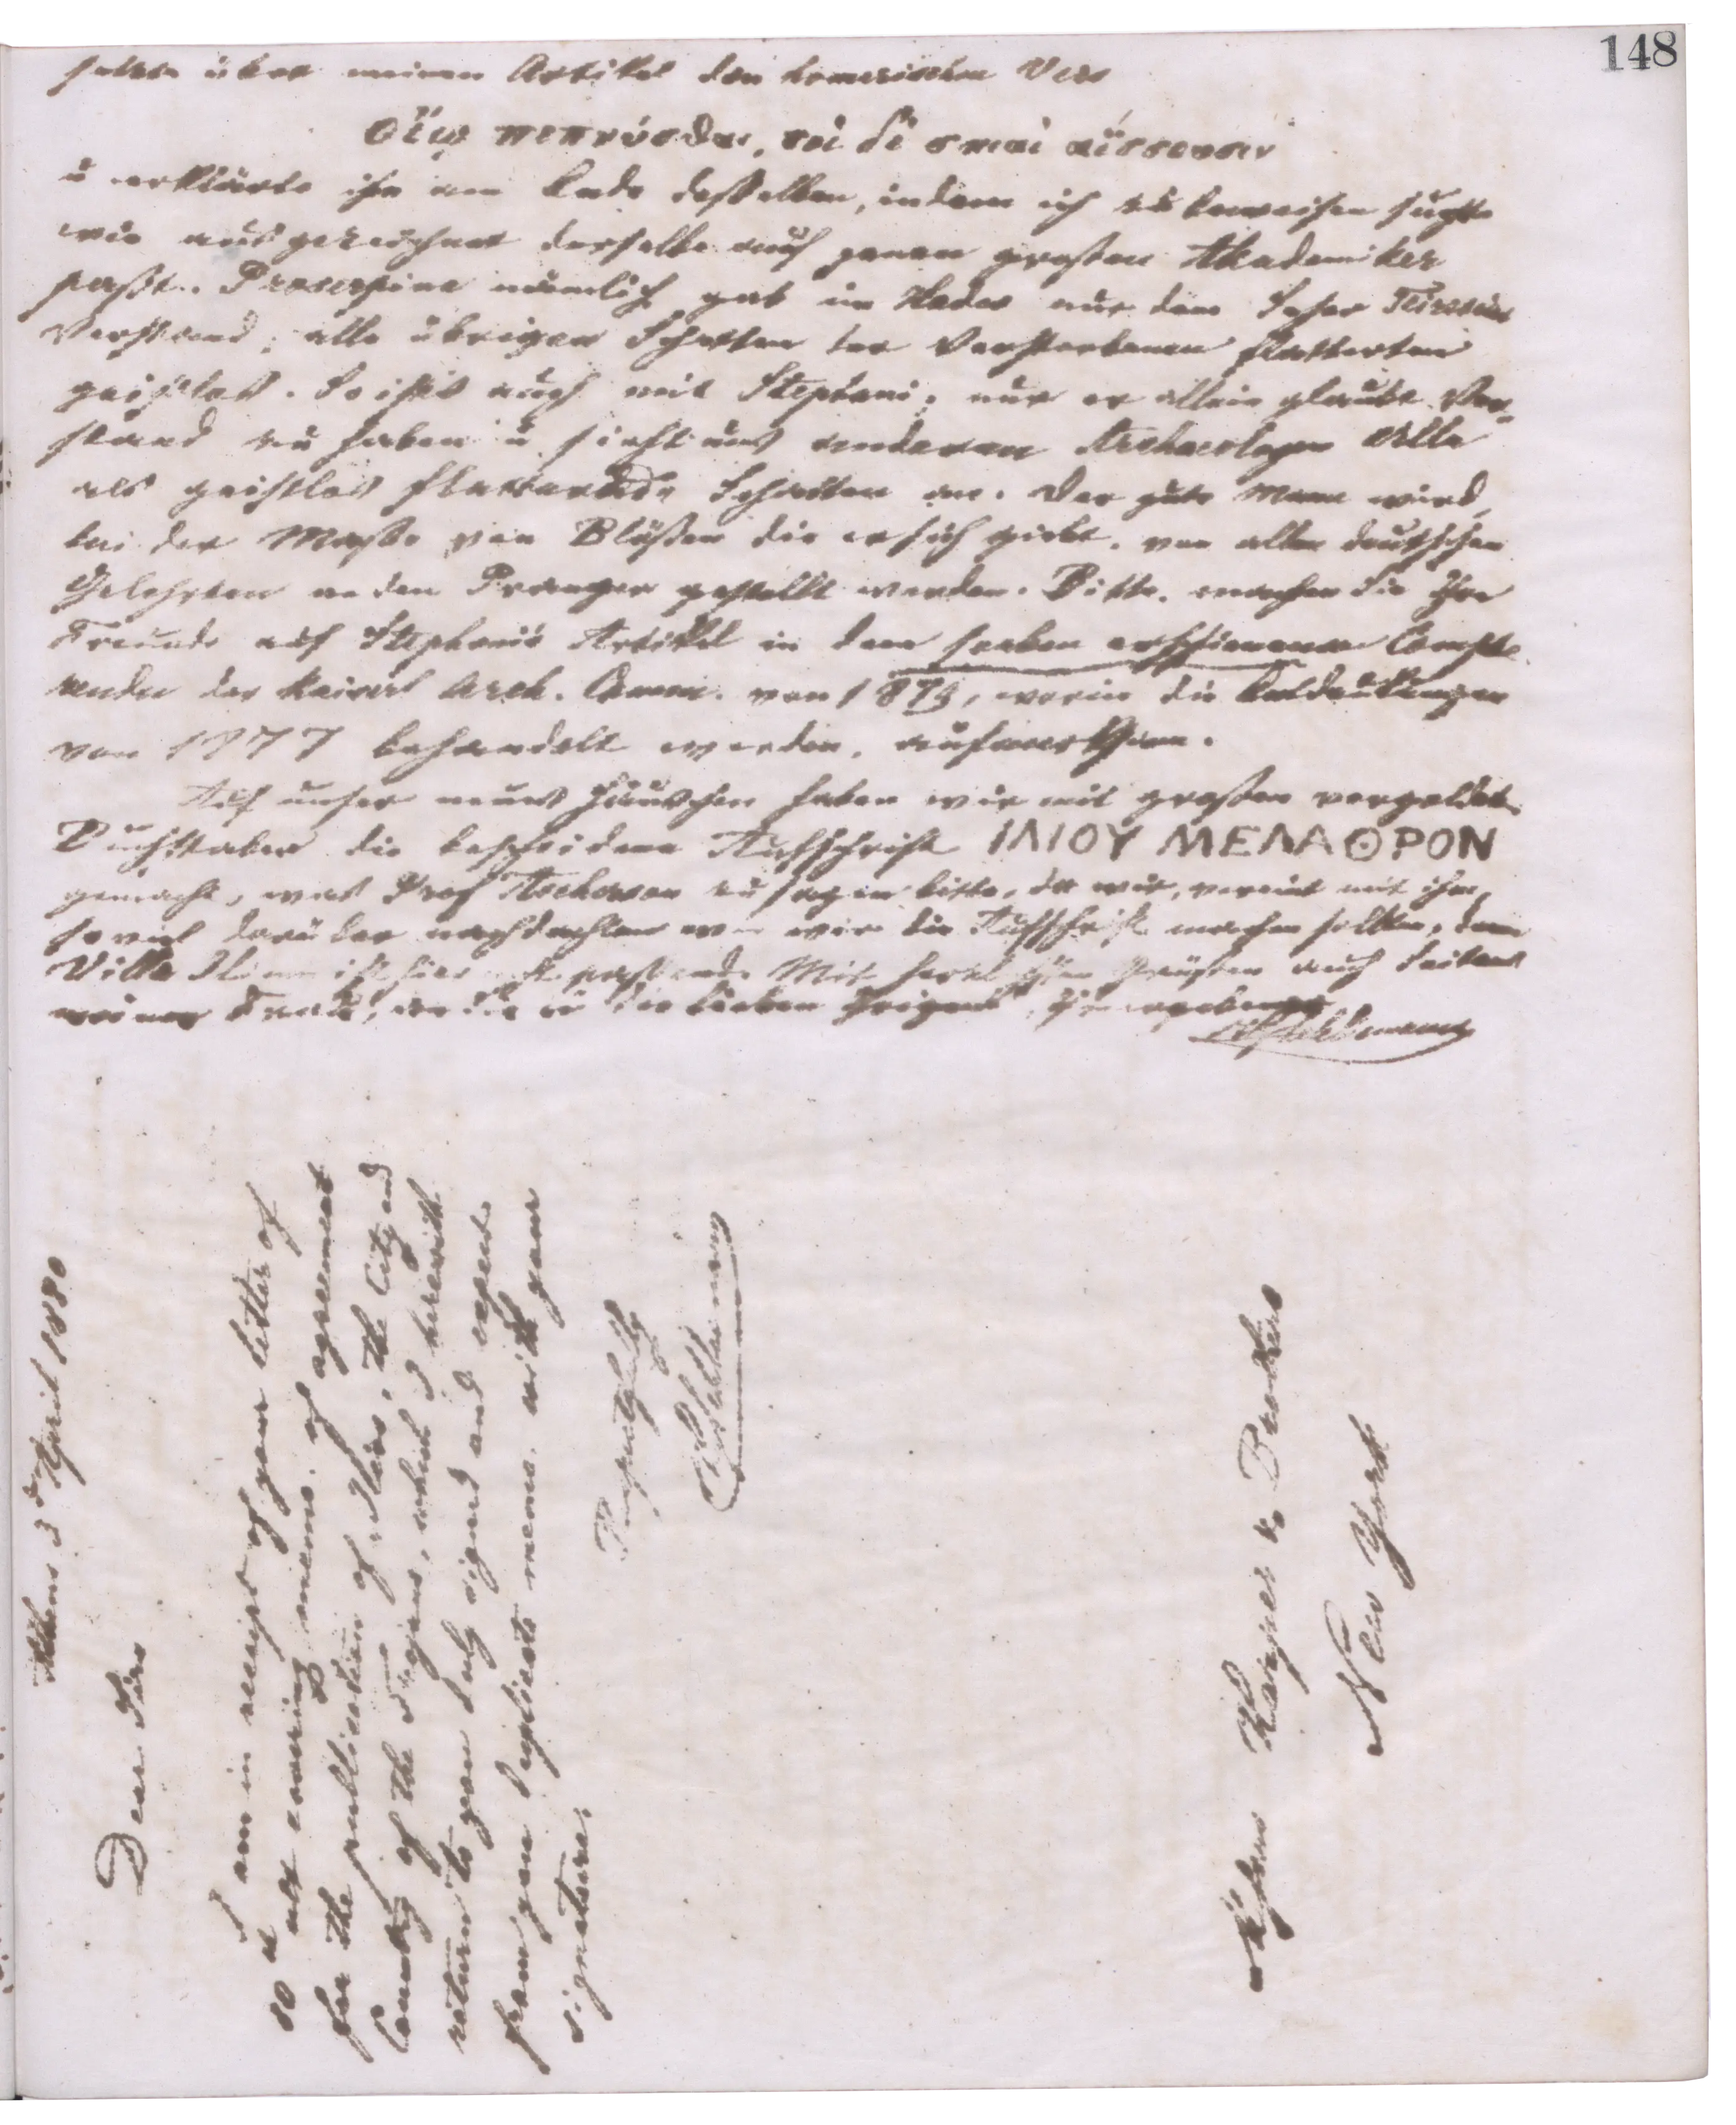 148
setzte über meinen Artikel den homerischen Vers
οἴῳ πεπνύσθαι, τοὶ δὲ σκιαὶ ἀΐσσουσιν
u erklärte ihn am Ende desselben, indem ich zu beweisen suchte
wie ausgezeichnet derselbe auf jenen großen Akademiker
paßt. Proserpina nämlich gab im Hades nur dem Seher Tiresias
Verstand; alle übrigen Schatten der Verstorbenen flatterten
geistlos. So ist's auch mit Stephani; nur er allein glaubt Ver-
stand zu haben u sieht uns anderen Archaeologen Alle
als geistlos flatternde Schatten an. Der gute Mann wird,
bei der Masse von Blößen die er sich giebt, von allen deutschen
Gelehrten an den Pranger gestellt werden. Bitte, machen Sie Ihre
Freunde auf Stephani's Artikel in dem soeben erschienenen Compte
rendu der Kaiserl Arch. Comm. von 187, worin die Entdeckungen
von 1877 behandelt werden, aufmerksam.
Auf unser neues Häuschen haben wir mit großen vergoldet.
Buchstaben die bescheidene Aufschrift ΙΛΙΟΥ ΜΕΛΑΘΡΟΝ
gemacht, was Prof Ascherson zu sagen bitte, da wir, vereint mit ihm,
so viel darüber nachdachten wie wir die Aufschrift machen sollten, denn
Villa ist hier passend. Mit herzlichsten Grüßen auch Seitens
meiner Frau, an Sie u die lieben Ihrigen, Ihr ergebener
Schliemann
Athens 3d April 1880
Dear Sirs
I am in receipt of your letter of
10th ult covering of agreement
for the publication of "Ilios, the City and
Country of the Trojans, which I herewith
return to you duly signed and expect
from you duplicate with your
signature.
Respectfully
Schliemann
Messrs Harper & Brothers
New York